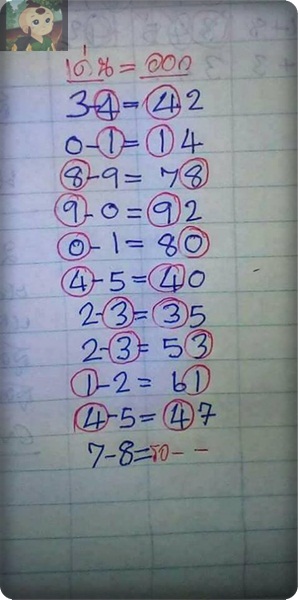 เด่น = ออก
3-4=42
0-1=14
8-9=78
9-0=92
0-1=80
4-5=40
2-3=35
2-3=53
1-2=61
4-5=47
7-8=รอ--